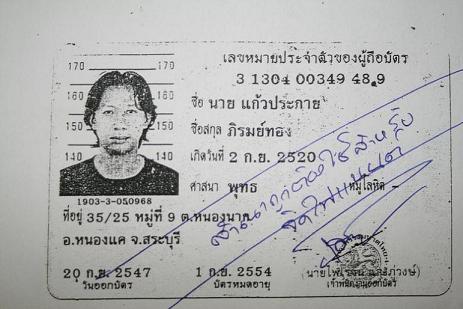 เลขหมายประจำตัวของผู้ถือบัตร
3 1304 00349 48 9
170 170
160 160
150 150
140 140
ชื่อ นาย แก้วประกาย
ชื่อสกุล ภิรมย์ทอง
เกิดวันที่ 2 ก.ย. 2520
ศาสนา พุทธ หมู่โลหิต -
1903-3-050968
ที่อยู่ 35/25 หมู่ที่ 9 ต.หนองนาก
อ.หนองแค จ.สระบุรี
20 ก.ย. 2547
วันออกบัตร
1 ก.ย. 2554
บัตรหมดอายุ
เจ้าพนักงานออกบัตร